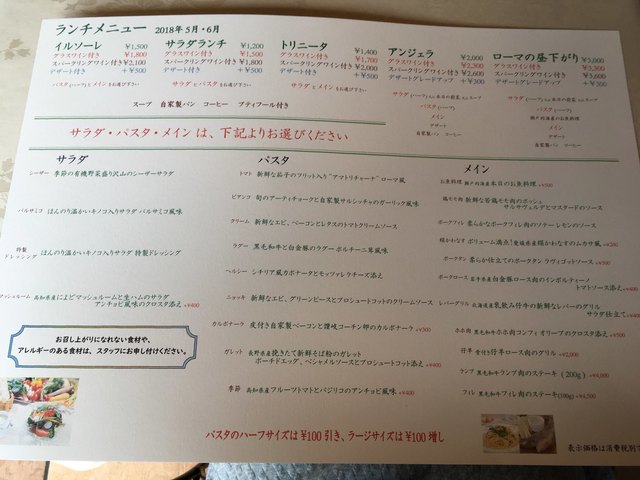 ランチメニュー 2018年5月・6月
イルソーレ ¥1,500
グラスワイン付き ¥1,800
スパークリングワイン付き ¥2,100
デザート付き +¥500
パスタ(ハーフ)とメインをお選び下さい
サラダランチ ¥1,200
グラスワイン付き ¥1,500
スパークリングワイン付き ¥1,800
デザート付き +¥500
サラダとパスタをお選び下さい
トリニータ ¥1,400
グラスワイン付き ¥1,700
スパークリングワイン付き ¥2,000
デザート付き +¥500
サラダとメインをお選び下さい
スープ 自家製パン コーヒー プティフール付き
アンジェラ ¥2,000
グラスワイン付き ¥2,300
スパークリングワイン付き ¥2,600
デザートグレードアップ +¥300
サラダ(ハーフ)or 本日の前菜 or スープ
パスタ(ハーフ)
メイン
デザート
自家製パン コーヒー
ローマの昼下がり ¥3,000
グラスワイン付き ¥3,300
スパークリングワイン付き ¥3,600
デザートグレードアップ +¥300
サラダ(ハーフ)or 本日の前菜 or スープ
パスタ(ハーフ)
瀬戸内海産のお魚料理
メイン
デザート
自家製パン コーヒー
サラダ・パスタ・メイン は、下記よりお選びください
サラダ
シーザー 季節の有機野菜盛り沢山のシーザーサラダ
バルサミコ ほんのり温かいキノコ入りサラダ バルサミコ風味
特製ドレッシング ほんのり温かいキノコ入りサラダ 特製ドレッシング
マッシュルーム 高知県産によどマッシュルームと生ハムのサラダ
アンチョビ風味のクロスタ添え +¥400
お召し上がりになれない食材や、
アレルギーのある食材は、スタッフにお申し付けください。
パスタ
トマト 新鮮な茄子のフリット入り"アマトリチャーナ"ローマ風
ビアンコ 旬のアーティチョークと自家製サルシッチャのガーリック風味
クリーム 新鮮なエビ、ベーコンとレタスのトマトクリームソース
ラグー 黒毛和牛と白金豚のラグー ポルチーニ茸風味
ヘルシー シチリア風カポナータとモッツァレラチーズ添え
ニョッキ 新鮮なエビ、グリーンピースとプロシュートコットのクリームソース
カルボナーラ 皮付き自家製ベーコンと讃岐コーチン卵のカルボナーラ +¥300
ガレット 長野県産挽きたて新鮮そば粉のガレット
ポーチドエッグ、ベシャメルソースとプロシュートコット添え +¥400
季節 高知県産フルーツトマトとバジリコのアンチョビ風味 +¥400
パスタのハーフサイズは ¥100 引き、ラージサイズは ¥100 増し
メイン
お魚料理 瀬戸内海産本日のお魚料理 +¥300
鶏モモ肉 新鮮な若鶏モモ肉のポッシェ
サルサヴェルデとマスタードのソース
ポークフィレ 柔らかなポークフィレ肉のソテー レモンのソース
媛かわなす ボリューム満点!愛媛県産媛かわなすのムサカ風 +¥200
ポークタン 柔らか仕立てのポークタン ラヴィゴットソース +¥300
ポークロース 岩手県産白金豚ロース肉のインボルティーノ
トマトソース添え +¥400
レバーグリル 北海道産乳飲み仔牛の新鮮なレバーのグリル
サラダ仕立て +¥400
ホホ肉 黒毛和牛ホホ肉コンフィ オリーブのクロスタ添え +¥500
仔羊 骨付き仔羊ロース肉のグリル +¥2,000
ランプ 黒毛和牛ランプ肉のステーキ (200g) +¥4,000
フィレ 黒毛和牛フィレ肉のステーキ(100g) +¥4,500
表示価格は消費税別